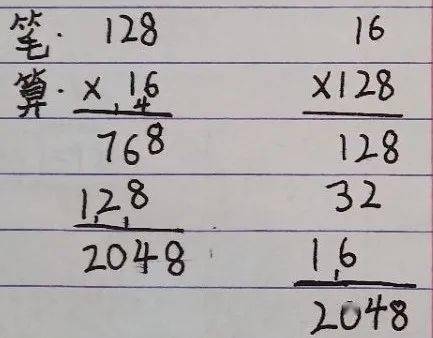 笔. 128 16
算. × 16 ×128
768 128
128 32
2048 16
2048